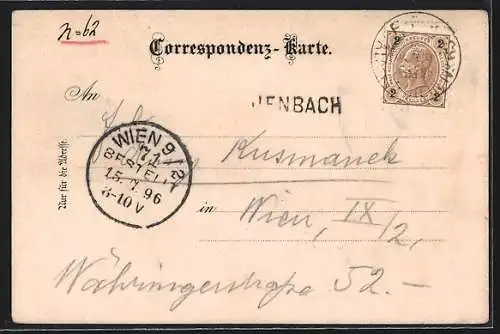 n=62
Correspondenz-Karte.
2 2
2 2
An
JENBACH
WIEN 9/2
71
BESTELLT
15. 7. 96
8-10 V
Kusmanek
Nur für die Adresse.
in Wien, IX/2,
Währingerstraße 52.-